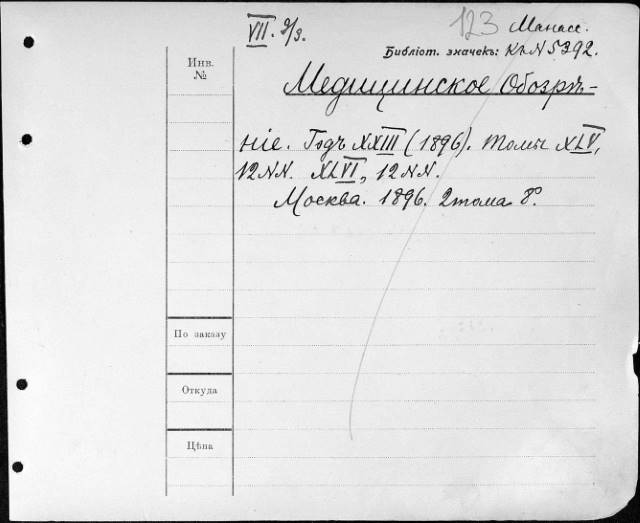 VII. 2/3.
123 Манасс.
Библіот. значекъ: Кл N 5392.
Инв.
№
Медицинское Обозрѣ-
ніе. Годъ XXIII (1896). Томы XLV,
12 NN. XLVI, 12 NN.
Москва. 1896. 2 тома 8°.
По заказу
Откуда
Цѣна